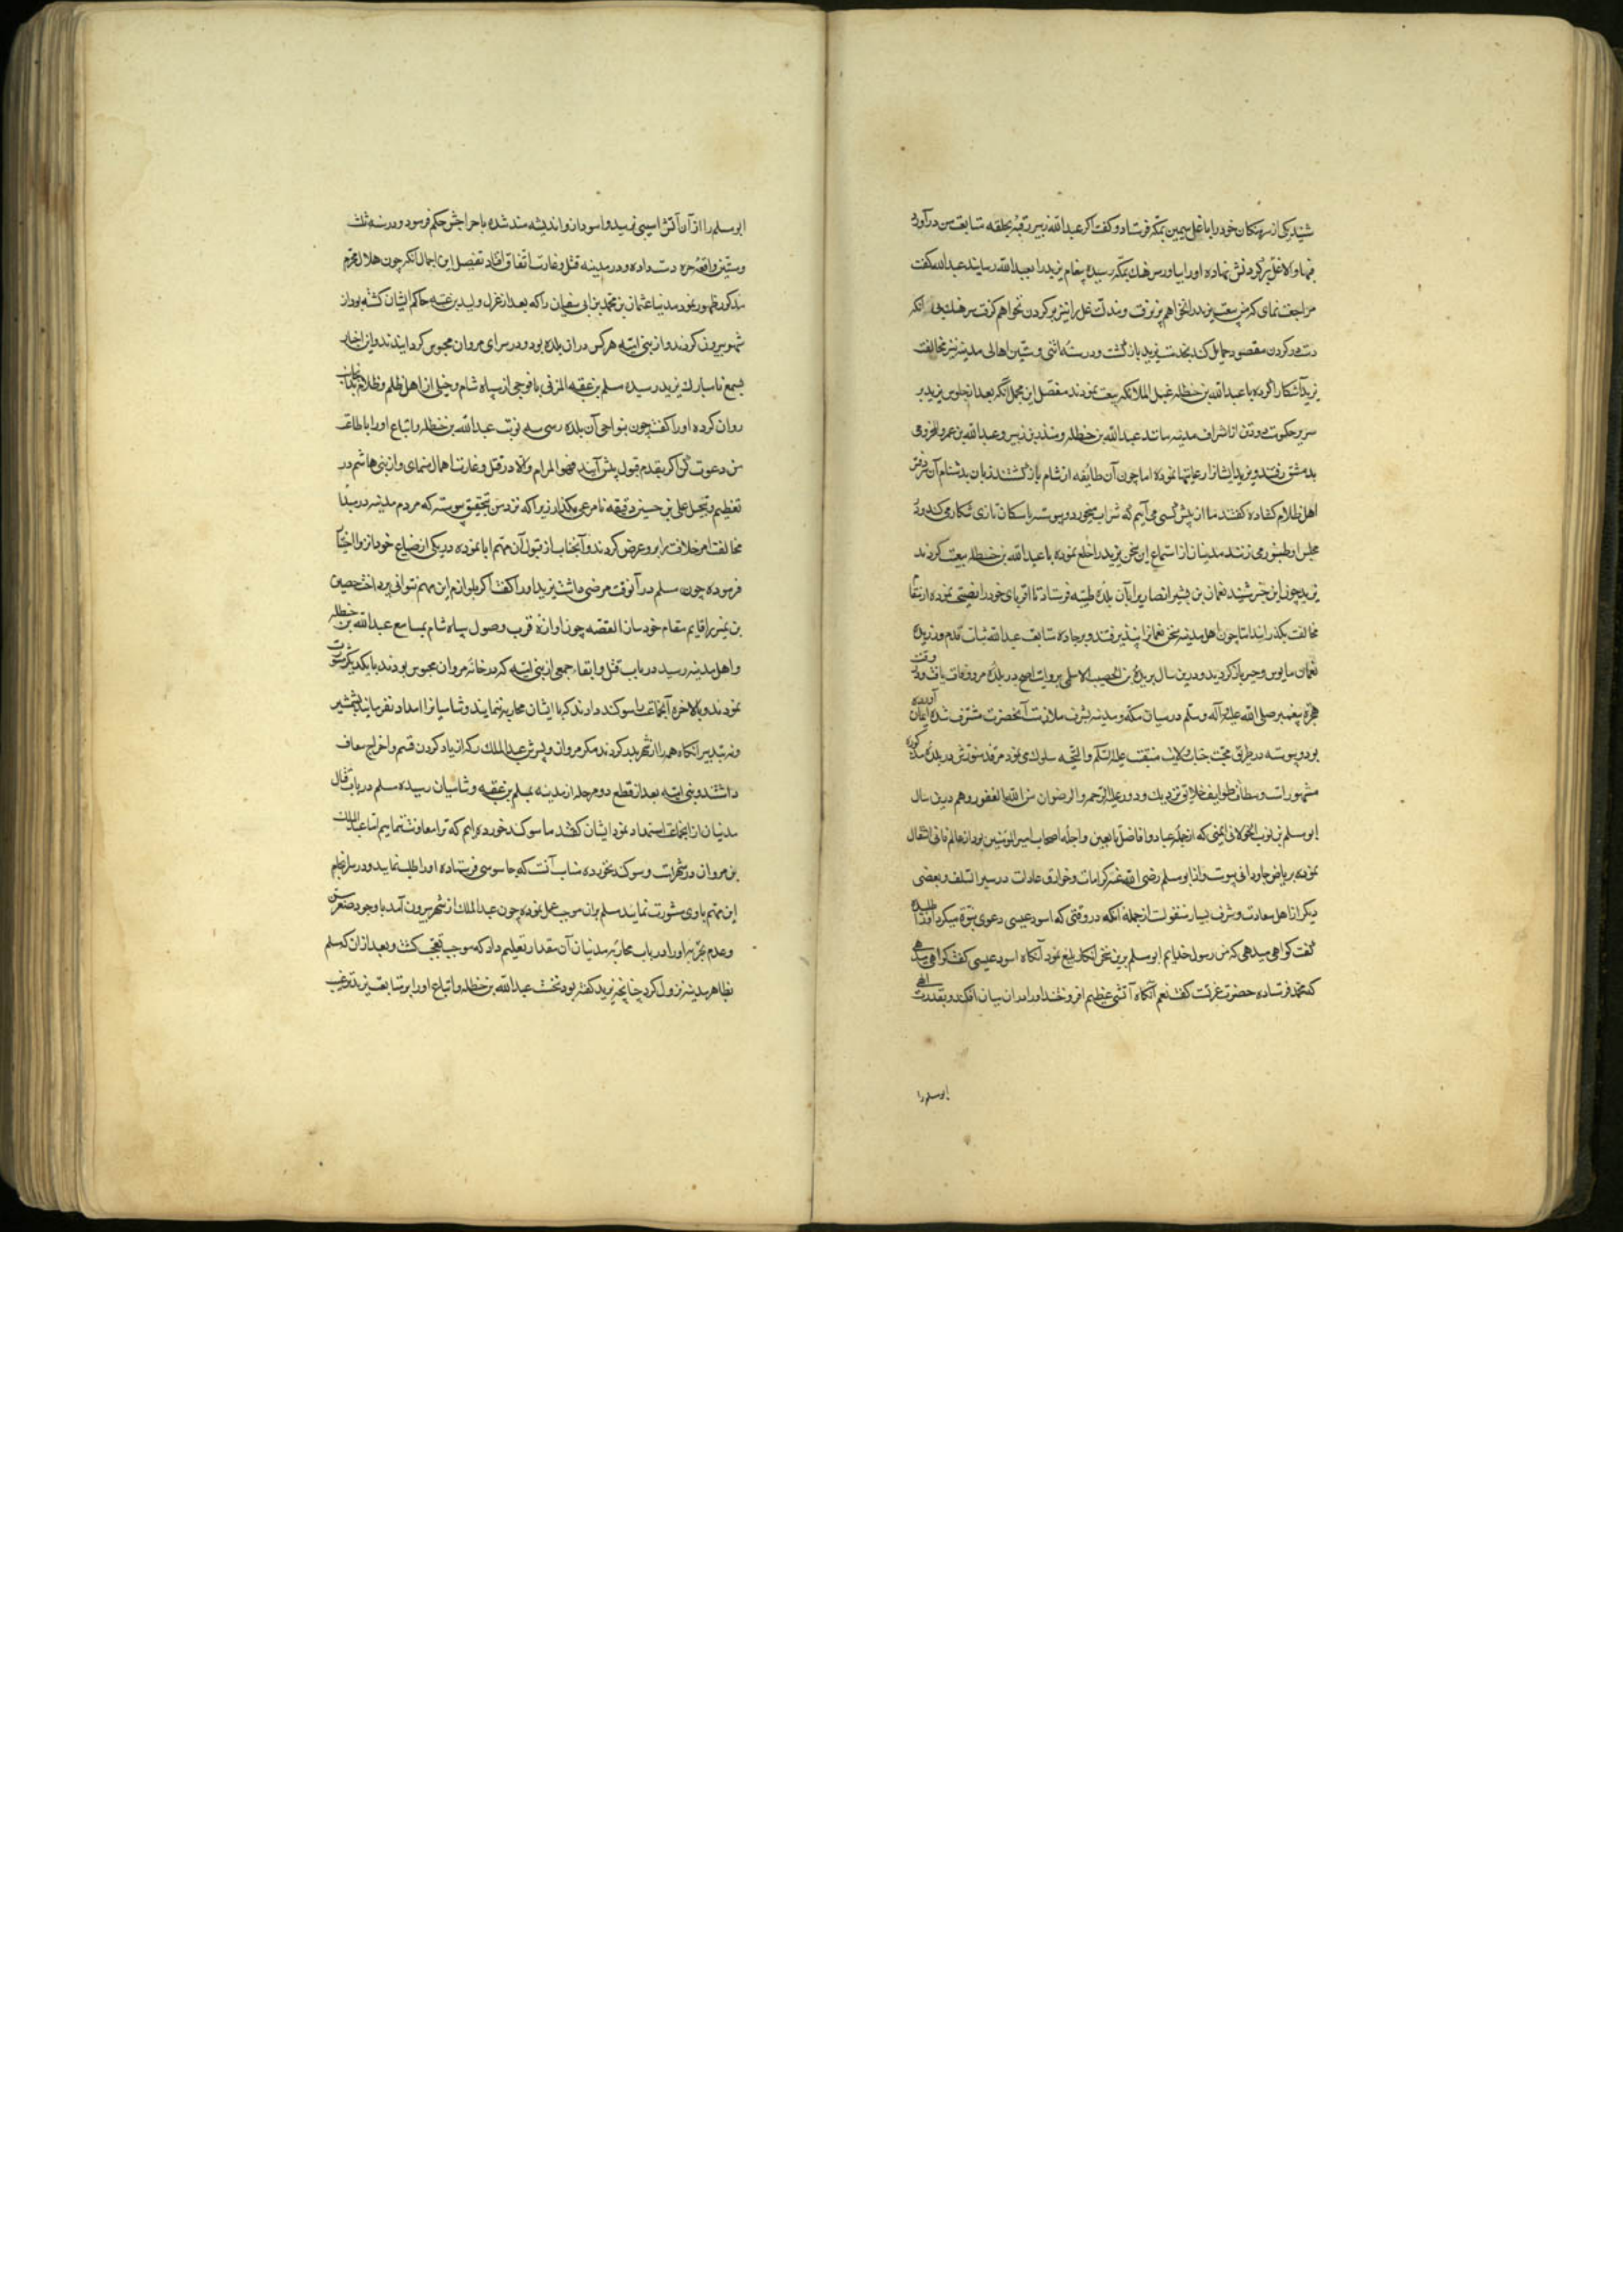 شنید یکی از سرهنکان خود را با غل سیمین بمکه فرستاد و کفت اکر عبدالله زبیر رقبه بحلقه متابعت من درآورد
فبها والا غل بر کردنش نهاده او را بیاور سرهنک بمکه رسیده پیغام یزید را بعبدالله رسانید عبدالله کفت
مراجعت نمای که من بیعت یزید را نخواهم پذیرفت و مذلت غل را نیز بر کردن نخواهم کرفت سرهنک بی آنکه
دست در کردن مقصود حمایل کند بخدمت یزید بازکشت و در سنه اثنی و ستین اهالی مدینه نیز مخالفت
یزید آشکارا کرده با عبدالله بن حنظله غسیل الملائکه بیعت نمودند مفصل این مجمل آنکه بعد از جلوس یزید بر
سریر حکومت دو تن از اشراف مدینه مانند عبدالله بن حنظله و منذر بن زبیر و عبدالله بن عمرو المخزومی
بدمشق رفتند و یزید ایشانرا رعایتها نموده اما چون آن طائفه از شام بازکشتند زبان بدشنام آن دفتر
اهل ظلام کشاده کفتند ما از پیش کسی می آییم که شراب میخورد و پیوسته با سکان تازی شکار می کند و در
مجلس او طنبور می زنند مدنیان از استماع این سخن یزید را خلع نموده با عبدالله بن حنظله بیعت کردند
یزید چون این خبر شنید نعمان بن بشیر انصاری را بآن بلده طیبه فرستاد تا اقربای خود را نصیحتی نموده از
مخالفت بکذراند اما چون اهل مدینه سخن نعمانرا نپذیرفتند و بر جاده متابعت عبدالله ثبات قدم ورزیدند
نعمان مایوس و حیران بازکردید و درین سال بریده بن الحصیب الاسلمی بروایت اصح در بلده مرو وفات یافت و در وقت
هجرة پیغمبر صلی الله علیه و آله و سلم در میان مکه و مدینه بشرف ملازمت آنحضرت مشرف شده ایمان آورده
بود و پیوسته در طریق محبت جناب ولایت منقبت علیه السلم والتحیه سلوک می نمود مرقد منورش در بلده مذکوره
مشهور است و مطاف طوایف خلایق نزدیک و دور علیه الترحم والرضوان من الله الغفور و هم درین سال
ابومسلم بن ثوب الخولانی الیمنی که از جمله عباد و افاضل تابعین و اجله اصحاب امیرالمؤمنین بود از عالم فانی انتقال
نموده بریاض جاودانی پیوست و از ابومسلم رضی الله عنه کرامات و خوارق عادات در سیر السلف و بعضی
دیکر از اهل سعادت و شرف بسیار منقولست از جمله آنکه در وقتی که اسود عنسی دعوی نبوة میکرد او را طلبیده
کفت کواهی میدهی که من رسول خدایم ابومسلم برین سخن انکار بلیغ نمود آنکاه اسود عنسی کفت کواهی میدهی
که محمد فرستاده حضرت عزتست کفت نعم آنکاه آتشی عظیم افروختند او را در آن میان افکند و بقدرت الهی
ابومسلم را
ابومسلم را از آن آتش آسیبی نرسید و اسود از و اندیشه مند شده باخراجش حکم فرمود و در سنه ثلث
و ستین واقعه حره دست داده و در مدینه قتل و غارت اتفاق افتاد تفصیل این اجمال آنکه چون هلال محرم
مذکور ظهور نمود مدنیان عثمان بن محمد بن ابی سفیان را که بعد از عزل ولید بن عتبه حاکم ایشان کشته بود از
شهر بیرون کردند و از بنی امیه هر کس در آن بلده بود در سرای مروان محبوس کردانیدند و این اخبار
بسمع نامبارک یزید رسیده مسلم بن عقبه المزنی با فوجی از سپاه شام و خیلی از اهل ظلم و ظلام بدان جانب
روان کرده او را کفت چون بنواحی آن بلده رسی سه نوبت عبدالله بن حنظله و اتباع او را باطاعت
من دعوت کن اکر بقدم قبول پیش آیند فهو المرام والا در قتل و غارت اهمال منمای و از بنی هاشم در
تعظیم و تبجیل علی بن حسین دقیقه نامرعی مکذار زیرا که نزد من بتحقیق پیوسته که مردم مدینه در مبدأ
مخالفت امر خلافت برابر او عرض کردند و آنجناب از قبول آن مهم ابا نموده در یکی از ضیاع خود انزوا اختیار
فرموده چون مسلم در آنوقت مرضی داشت یزید او را کفت اکر بلوازم این مهم نتوانی پرداخت حصین
بن نمیر را قایم مقام خود ساز القصه چون آوازه قرب وصول سپاه شام بمسامع عبدالله بن حنظله
و اهل مدینه رسید در باب قتل و ابقاء جمعی از بنی امیه که در خانه مروان محبوس بودند با یکدیکر مشورت
نمودند و بالاخره آنجماعت را سوکند دادند که با ایشان محاربه ننمایند و شامیانرا امداد نفرمایند بشمشیر
و نه بتدبیر آنکاه همه را از شهر بدر کردند مکر مروان و پسرش عبدالملک که از یاد کردن قسم و اخراج معاف
داشتند و بنی امیه بعد از قطع دو مرحله از مدینه بمسلم بن عقبه و شامیان رسیده مسلم در باب قتال
مدنیان از آنجماعت استمداد نمود ایشان کفتند ما سوکند خورده ایم که ترا معاونت ننماییم اما عبدالملک
بن مروان در شهرست و سوکند نخورده مناسب آنست که جاسوسی فرستاده او را طلب نمایید و در سرانجام
این مهم با وی مشورت نمایند مسلم بران موجب عمل نموده چون عبدالملک از شهر بیرون آمد با وجود صغر سن
و عدم تجربه او را در باب محاربه مدنیان آن مقدار تعلیم داد که موجب تعجب کشت و بعد از آن که مسلم
بظاهر مدینه نزول کرد چنانچه یزید کفته بود نخست عبدالله بن حنظله و اتباع او را بر متابعت یزید ترغیب